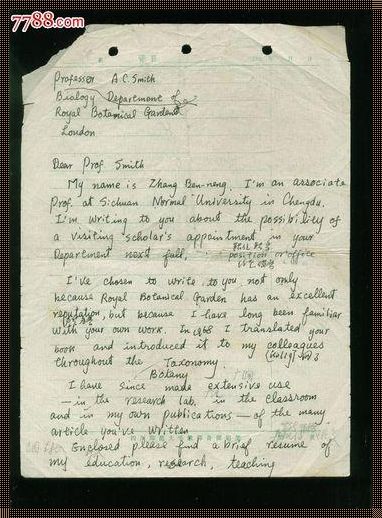 7788.com
Professor A.C. Smith
Biology Department of
Royal Botanical Garden
London
Dear Prof. Smith
My name is Zhang Ben-neng. I'm an associate
Prof. at Sichuan Normal University in Chengdu.
I'm writing to you about the possibility of
a visiting scholar's appointment in your
Department next fall.
position or office
I've chosen to write to you not only
because Royal Botanical Garden has an excellent
reputation, but because I have long been familiar
with your own work. In 1968 I translated your
book and introduced it to my colleagues
throughout the Taxonomy.
Botany
I have since made extensive use
— in the research lab, in the classroom
and in my own publications — of the many
article you've written
Enclosed please find a brief resume of
my education, research, teaching